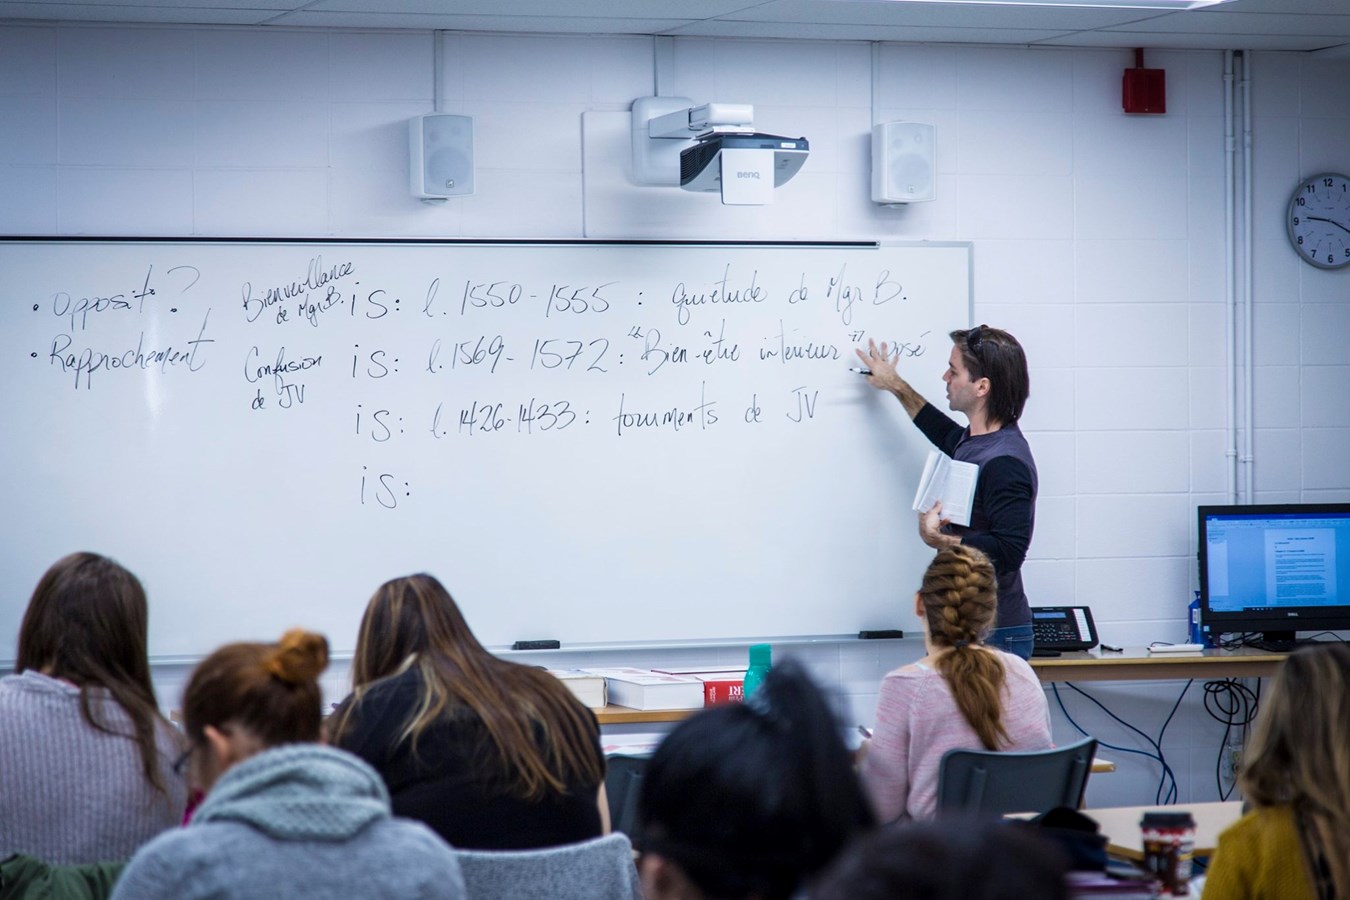 BenQ
• Opposit° ?
• Rapprochement
Bienveillance
de Mgr B.
Confusion
de JV
is: l. 1550-1555 : quiétude de Mgr B.
is: l. 1569-1572 : "Bien-être intérieur"
is: l. 1426-1433 : tourments de JV
is:
12
1
11
10
9
8
7
6
5
DELL